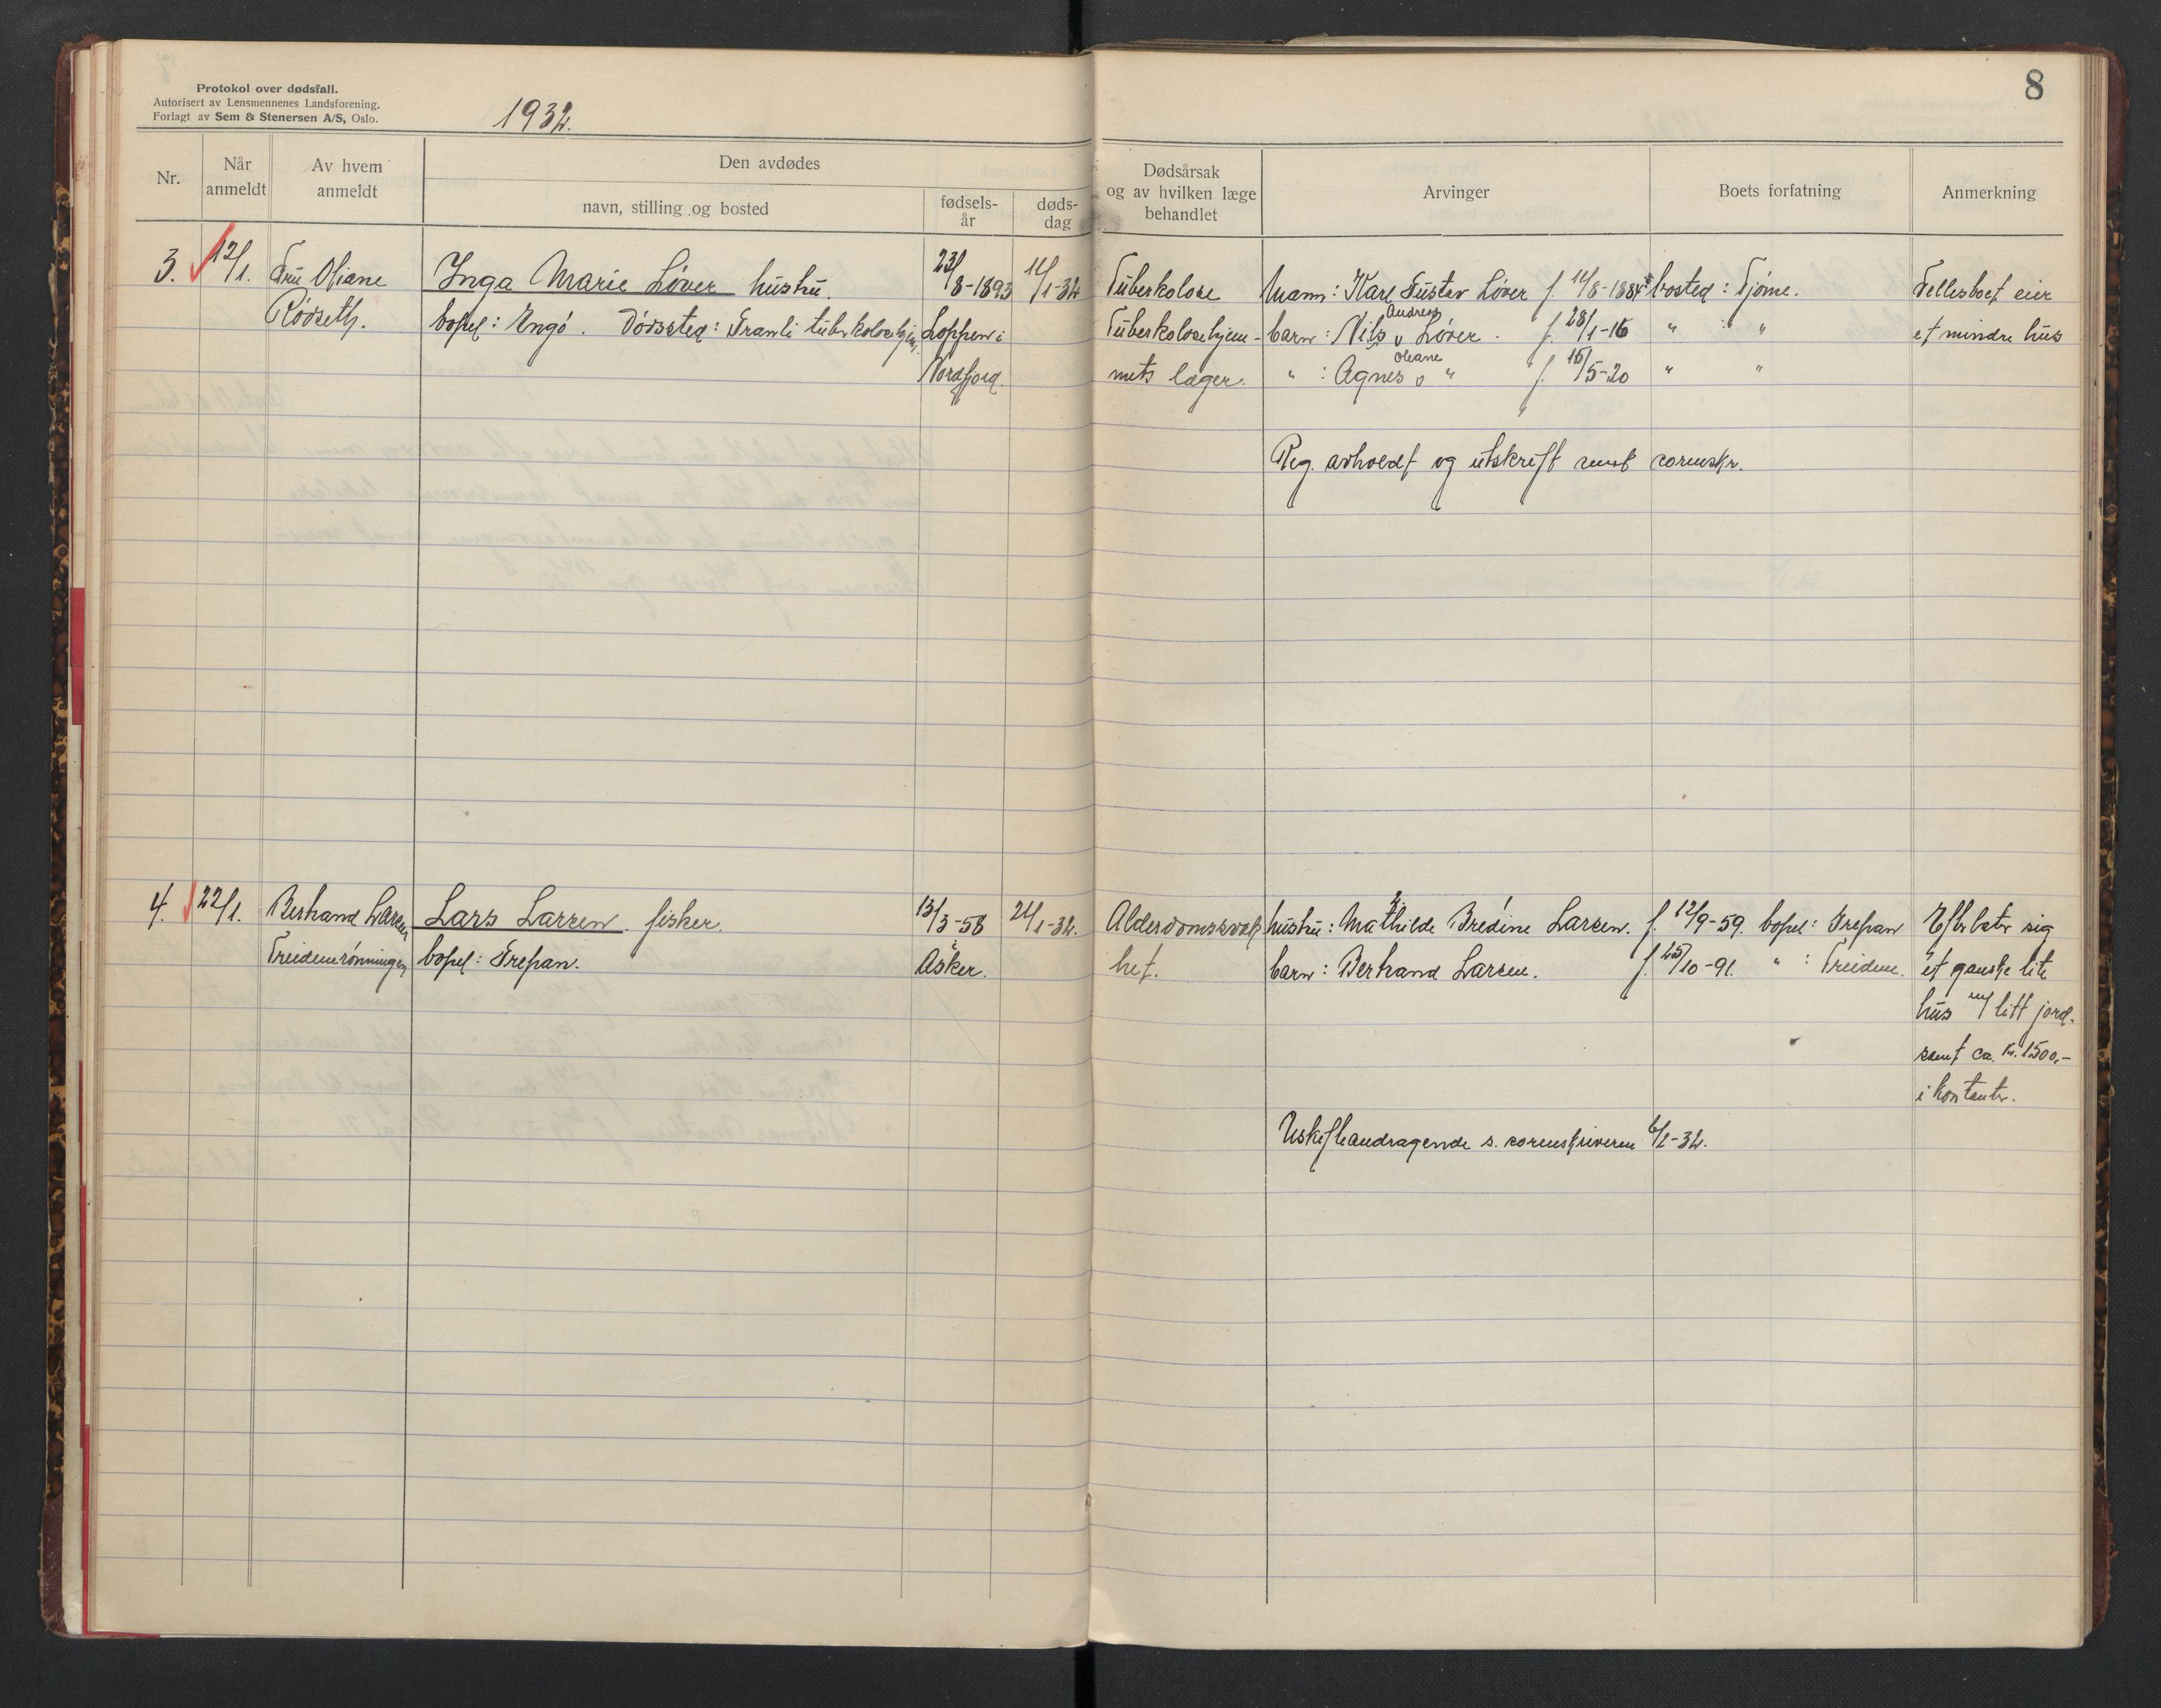 8
Protokol over dødsfall.
Autorisert av Lensmennenes Landsforening.
Forlagt av Sem & Stenersen A/S, Oslo.
1932.
Nr.
Når anmeldt
Av hvem anmeldt
Den avdødes
navn, stilling og bosted
fødsels-år
døds-dag
Dødsårsak og av hvilken læge behandlet
Arvinger
Boets forfatning
Anmerkning
3. 12/1. Fru Oliane Inga Marie Løver hustru. 23/8-1893 11/1-32 Tuberkolose Mann: Karl Gustav Løver f. 11/8-1884 bosted: Tjøme. Fellesboet eier
Rødseth. bopel: Engø. Dødssted: Granli tuberkolosehjem Loppen i Tuberkolosehjem- barn: Nils Andreas Løver. f. 28/1-16 " " " et mindre hus
Nordfjord. mets læger. " : Agnes Oleane " f. 16/5-20 " "
Reg. avholdt og utskrift sendt sorenskr.
4. 22/1. Bertrand Larsen Lars Larsen. fisker. 13/3-56 21/1-32. Alderdomssvak- hustru: Mathilde Bredine Larsen. f. 12/9-59. bopel: Grepan Efterlater sig
Treidenerønningen bopel: Grepan. Asker. het. barn: Bertrand Larsen. f. 25/10-91. " : Treidene. et ganske lite
hus m/ litt jord.
samt ca. kr. 1500,-
i kontanter.
Uskifteandragende s. sorenskriveren 6/2-32.